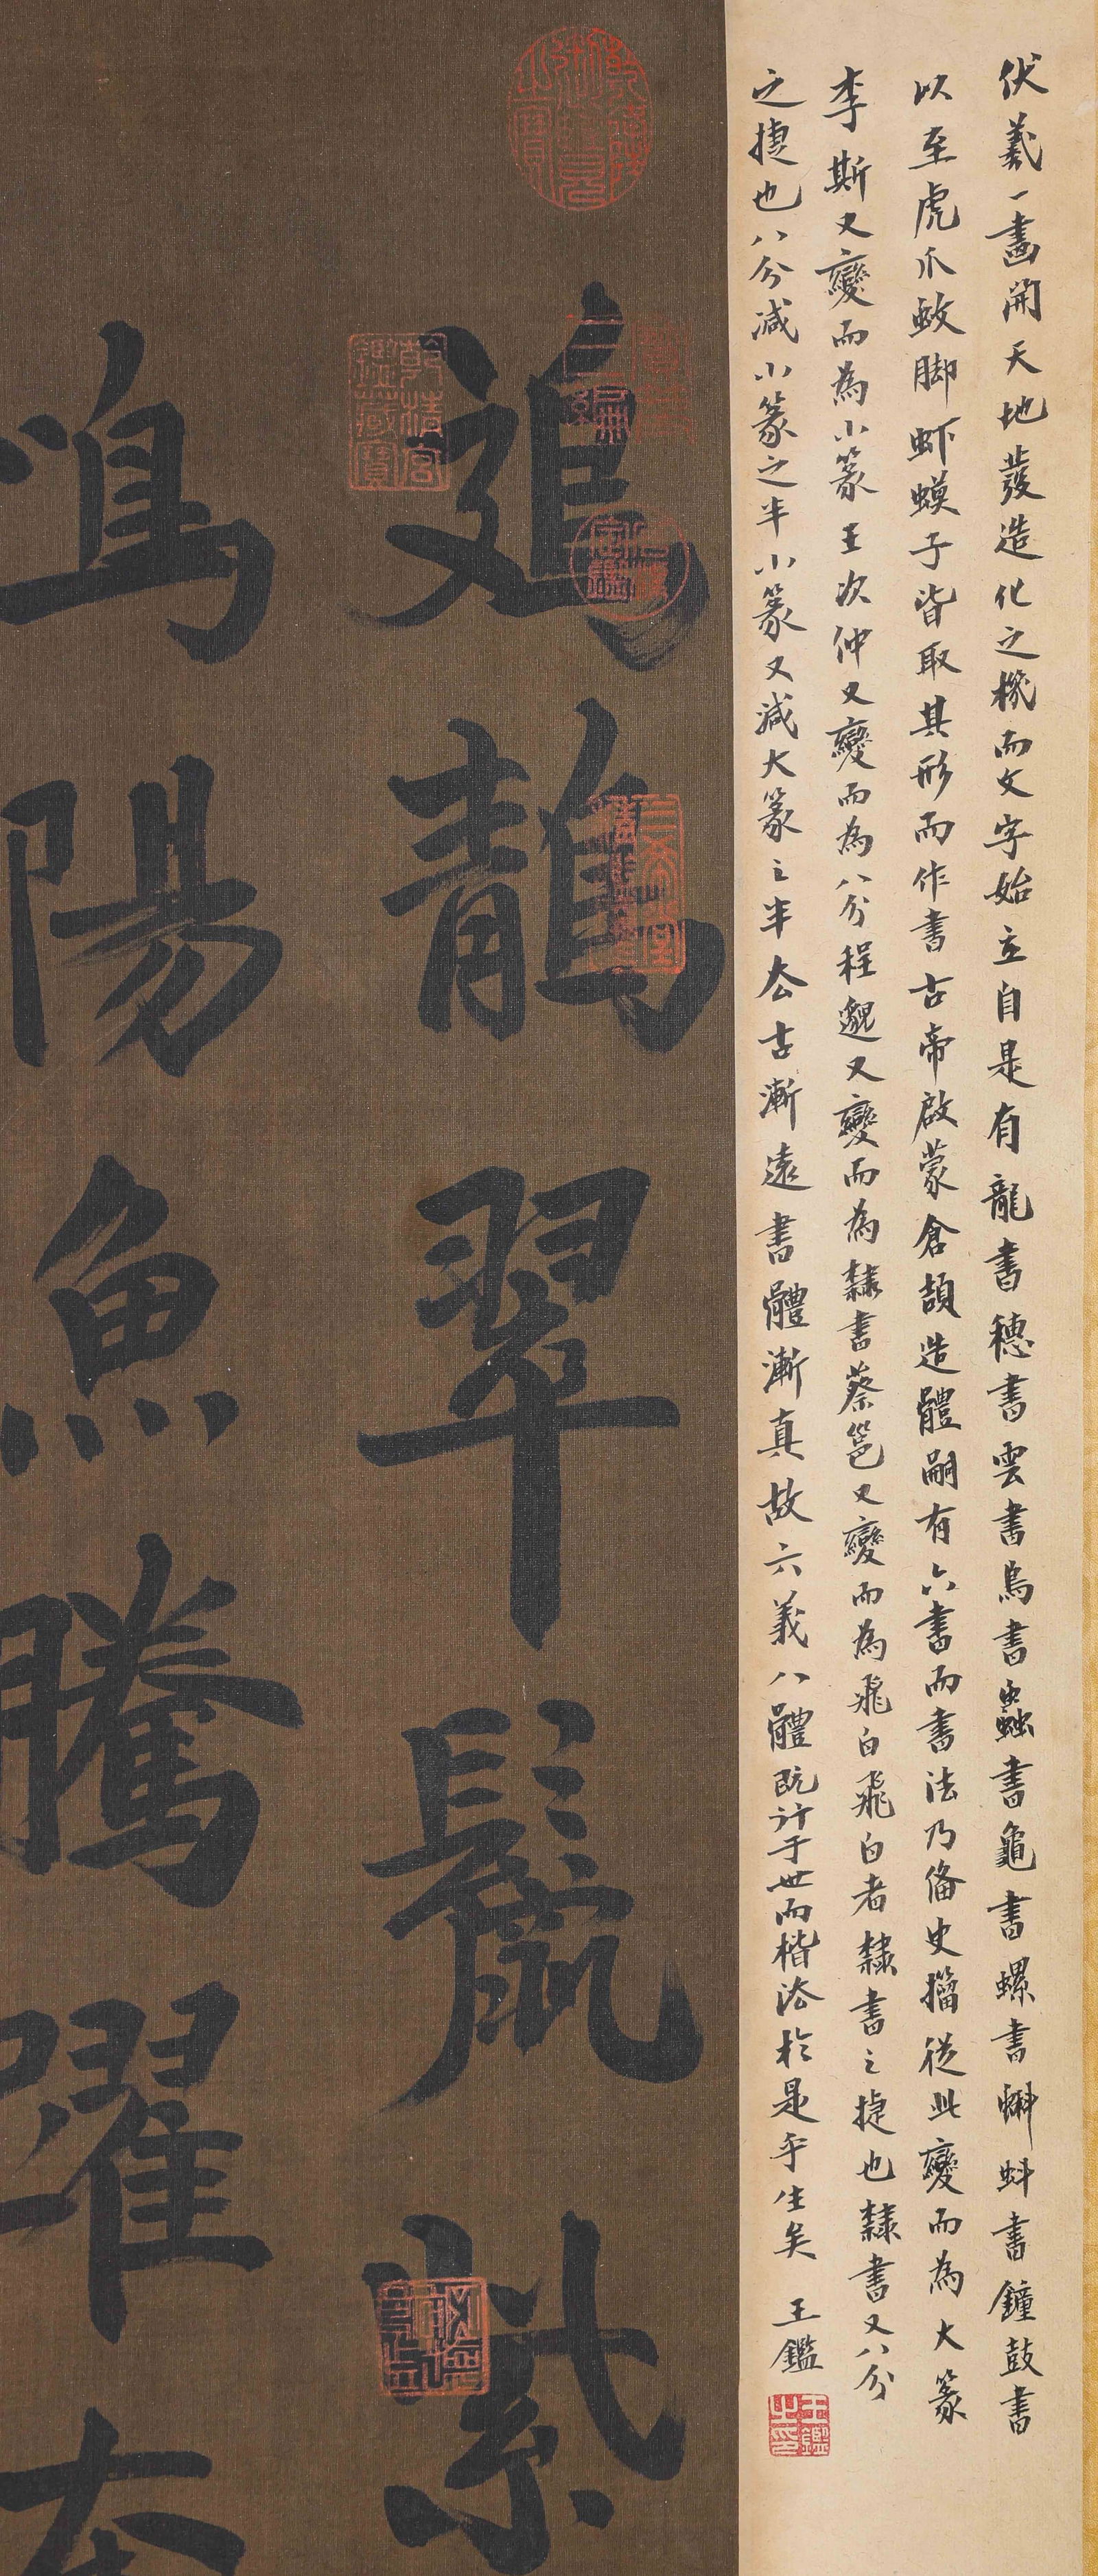 伏羲一畫開天地發造化之機而文字始立自是有龍書穗書雲書鳥書蟲書龜書螺書蝌蚪書鐘鼓書
以至虎爪蚊脚蝦蟆子皆取其形而作書古帝啟蒙倉頡造體嗣有六書而書法乃俻史籀從此變而為大篆
李斯又變而為小篆王次仲又變而為八分程邈又變而為隸書蔡邕又變而為飛白飛白者隸書之捷也隸書又八分
之捷也八分減小篆之半小篆又減大篆之半去古漸遠書體漸真故六義八體既行于世而楷法於是乎生矣 王鑑
王鑑之印
鵕鶄翠鬣紫
鳴陽魚騰躍
乾清宮鑑藏寶
三希堂精鑑璽